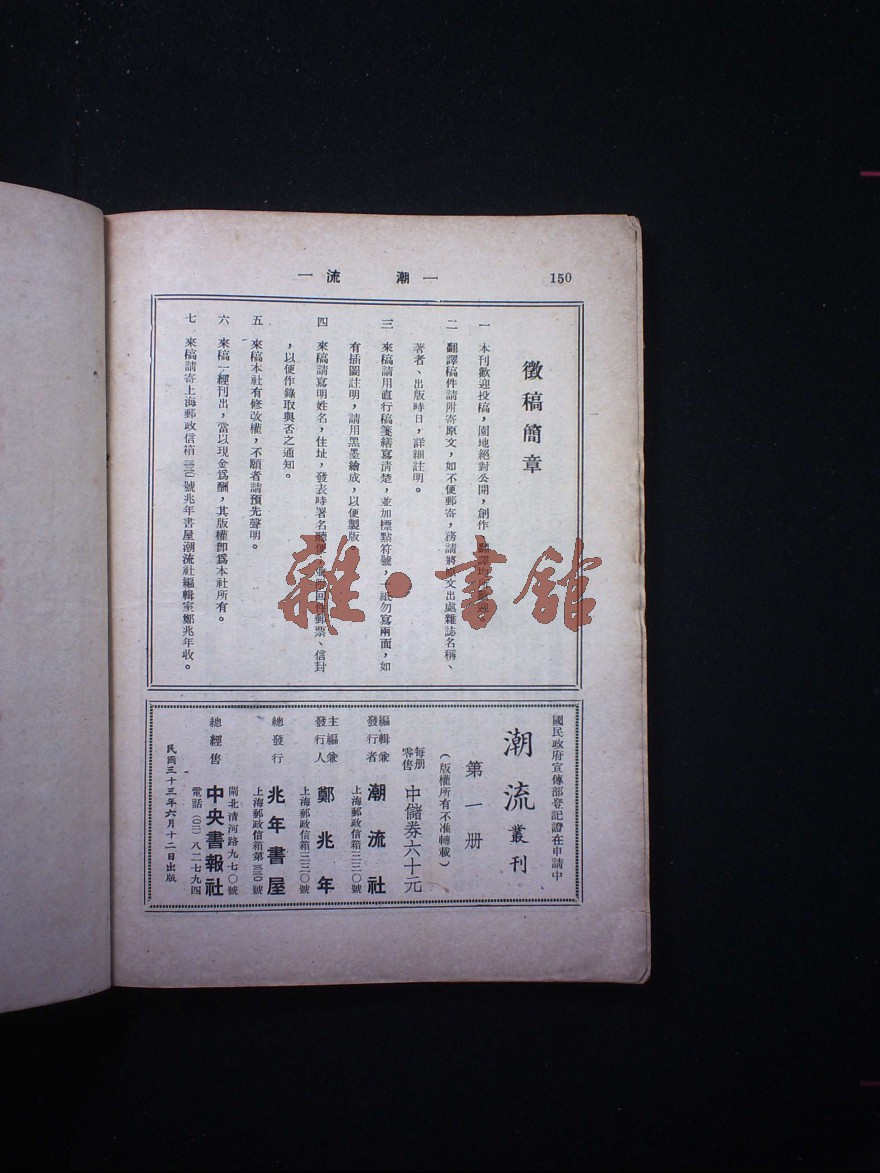 150
一 潮 流 一
徵稿簡章
一 本刊歡迎投稿，園地絕對公開，創作，翻譯均所歡迎。
二 翻譯稿件請附寄原文，如不便郵寄，務請將原文出處雜誌名稱、
著者、出版時日，詳細註明。
三 來稿請用直行稿箋繕寫清楚，並加標點符號，一紙勿寫兩面，如
有插圖註明，請用黑墨繪成，以便製版。
四 來稿請寫明姓名，住址，發表時署名聽便，並附回件郵票、信封
，以便作錄取與否之通知。
五 來稿本社有修改權，不願者請預先聲明。
六 來稿一經刊出，當以現金爲酬，其版權卽爲本社所有。
七 來稿請寄上海郵政信箱三三〇號兆年書屋潮流社編輯室鄭兆年收。
雜·書館
國民政府宣傳部登記證在申請中
潮流叢刊
第一册
（版權所有不准轉載）
每册零售 中儲券六十元
編輯兼發行者 潮流社
上海郵政信箱三三〇號
主編兼發行人 鄭兆年
上海郵政信箱三三〇號
總發行 兆年書屋
上海郵政信箱第三三〇號
總經售 中央書報社
閘北清河路九七〇號
電話（〇二）八二七九四
民國三十三年六月十二日出版